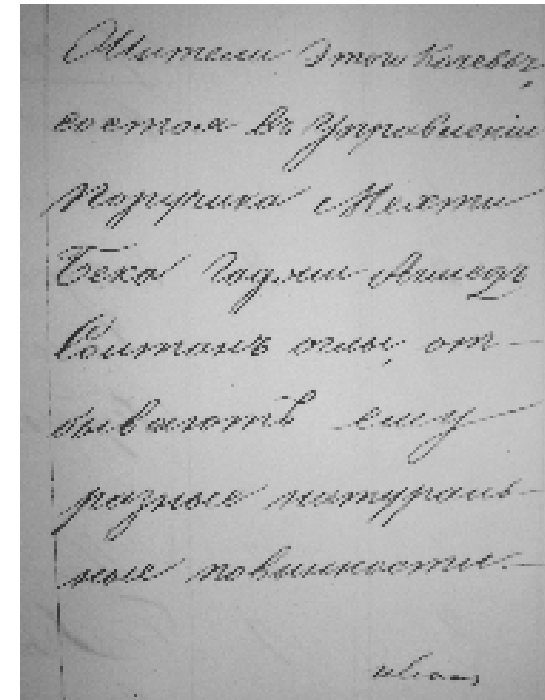 Жители этого кочевья,
состоя въ управленіи
поручика Мехти
Бека Гаджи Ахмедъ
Солтанъ оглы, от-
бываютъ ему
разные натураль-
ные повинности.